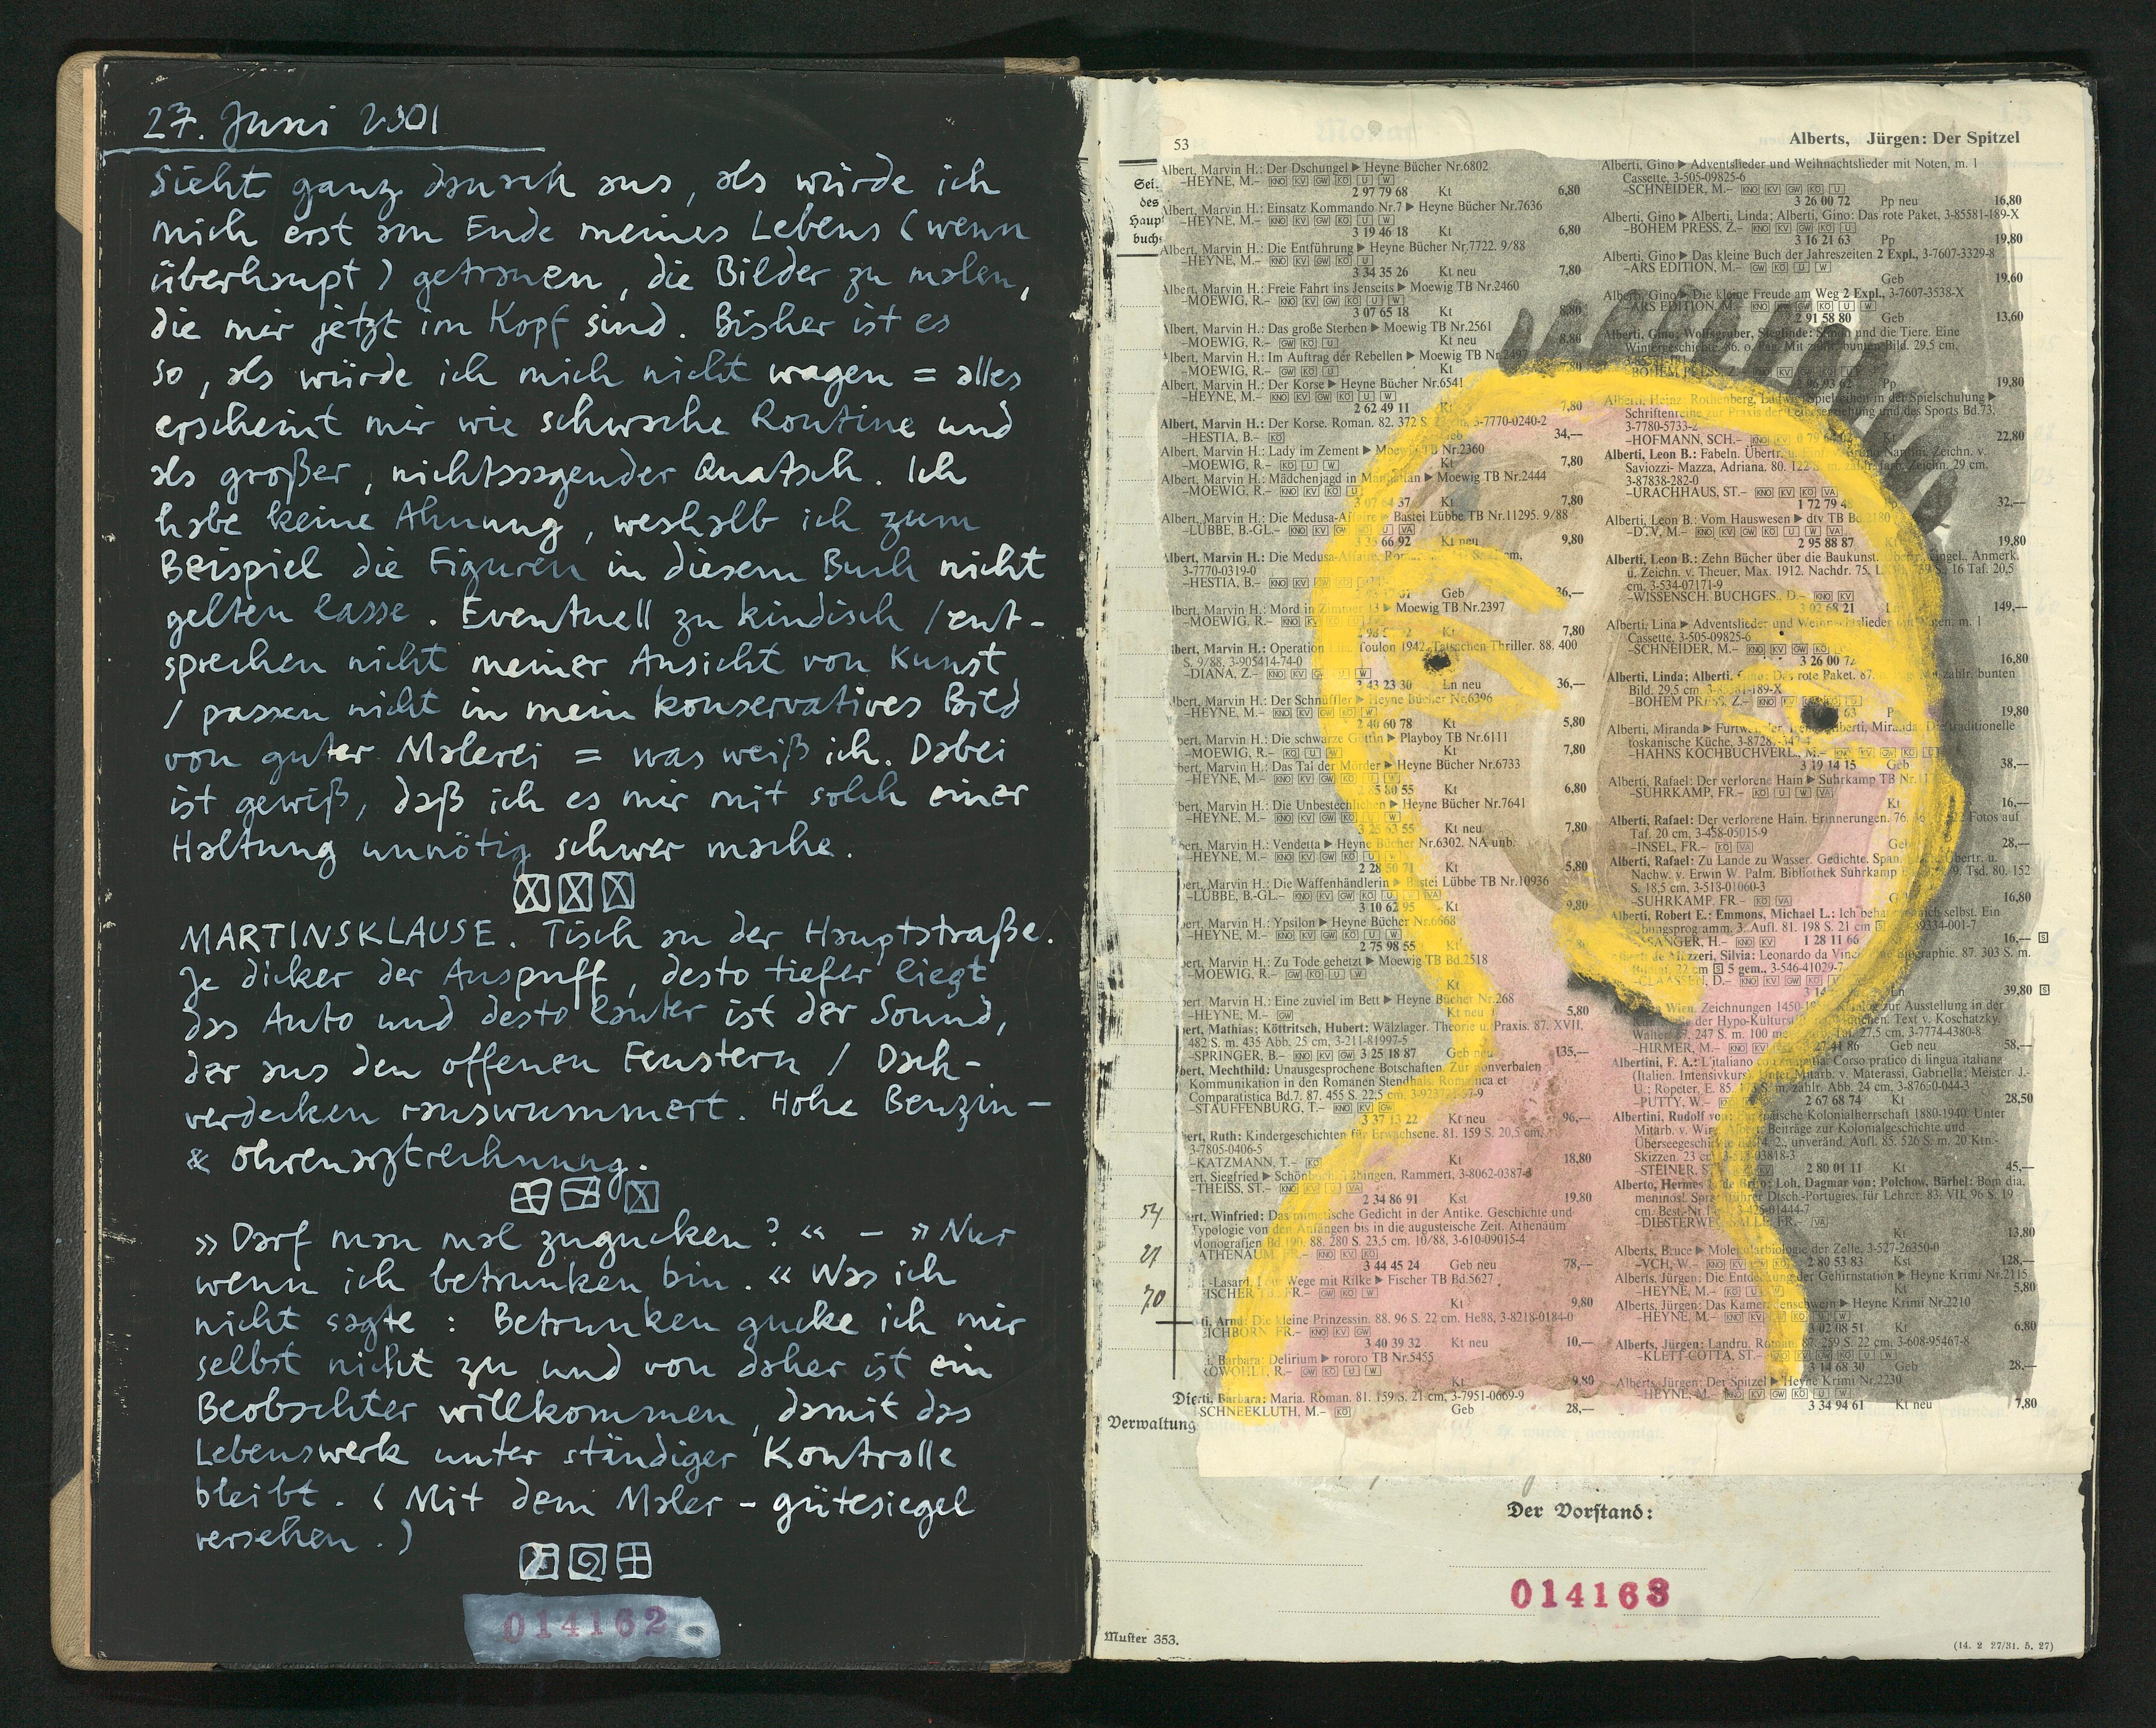 27. Juni 2001
Sieht ganz danach aus, als würde ich
mich erst am Ende meines Lebens (wenn
überhaupt) getrauen, die Bilder zu malen,
die mir jetzt im Kopf sind. Bisher ist es
so, als würde ich mich nicht wagen = alles
erscheint mir wie schwache Routine und
als großer, nichtssagender Quatsch. Ich
habe keine Ahnung, weshalb ich zum
Beispiel die Figuren in diesem Buch nicht
gelten lasse. Eventuell zu kindisch / ent-
sprechen nicht meiner Ansicht von Kunst
/ passen nicht in mein konservatives Bild
von guter Malerei = was weiß ich. Dabei
ist gewiß, daß ich es mir mit solch einer
Haltung unnötig schwer mache.
MARTINSKLAUSE. Tisch an der Hauptstraße.
Je dicker der Auspuff, desto tiefer liegt
das Auto und desto lauter ist der Sound,
der aus den offenen Fenstern / Dach-
verdecken rauswummert. Hohe Benzin-
& Ohrenarztrechnung.
»Darf man mal zugucken?« – »Nur
wenn ich betrunken bin.« Was ich
nicht sagte: Betrunken gucke ich mir
selbst nicht zu und von daher ist ein
Beobachter willkommen, damit das
Lebenswerk unter ständiger Kontrolle
bleibt. (Mit dem Maler-gütesiegel
versehen.)
014162
53
Alberts, Jürgen: Der Spitzel
Sei.
des
Haupt
buchs
Albert, Marvin H.: Der Dschungel ▶ Heyne Bücher Nr.6802
–HEYNE, M.– KNO KV GW KÖ U W
2 97 79 68 Kt 6,80
Albert, Marvin H.: Einsatz Kommando Nr.7 ▶ Heyne Bücher Nr.7636
–HEYNE, M.– KNO KV GW KÖ U W
3 19 46 18 Kt 6,80
Albert, Marvin H.: Die Entführung ▶ Heyne Bücher Nr.7722. 9/88
–HEYNE, M.– KNO KV GW KÖ U
3 34 35 26 Kt neu 7,80
Albert, Marvin H.: Freie Fahrt ins Jenseits ▶ Moewig TB Nr.2460
–MOEWIG, R.– KNO KV GW KÖ U W
3 07 65 18 Kt 8,80
Albert, Marvin H.: Das große Sterben ▶ Moewig TB Nr.2561
–MOEWIG, R.– GW KÖ U
Kt neu 8,80
Albert, Marvin H.: Im Auftrag der Rebellen ▶ Moewig TB Nr.2497
–MOEWIG, R.– GW KÖ U
Kt 7,80
Albert, Marvin H.: Der Korse ▶ Heyne Bücher Nr.6541
–HEYNE, M.– KNO KV GW KÖ U W
2 62 49 11 Kt 7,80
Albert, Marvin H.: Der Korse. Roman. 82. 372 S. 3-7770-0240-2
–HESTIA, B.– KÖ 34,—
Albert, Marvin H.: Lady im Zement ▶ Moewig TB Nr.2360
–MOEWIG, R.– KÖ U W
Kt 7,80
Albert, Marvin H.: Mädchenjagd in Manhattan ▶ Moewig TB Nr.2444
–MOEWIG, R.– KNO KV KÖ U
Kt 7,80
Albert, Marvin H.: Die Medusa-Affaire ▶ Bastei Lübbe TB Nr.11295. 9/88
–LÜBBE, B.-GL.– KNO KV GW KÖ U VA
66 92 Kt neu 9,80
Albert, Marvin H.: Die Medusa-Affaire.
3-7770-0319-0
–HESTIA, B.– KNO KV GW
Geb 36,—
lbert, Marvin H.: Mord in Zimmer 13 ▶ Moewig TB Nr.2397
–MOEWIG, R.– KNO KV
Kt 7,80
lbert, Marvin H.: Operation Toulon 1942. Tatsachen Thriller. 88. 400
S. 9/88, 3-905414-74-0
–DIANA, Z.– KNO KV W
3 43 23 30 Ln neu 36,—
lbert, Marvin H.: Der Schnüffler ▶ Heyne Bücher Nr.6396
–HEYNE, M.– KNO KV GW KÖ W
2 40 60 78 Kt 5,80
bert, Marvin H.: Die schwarze Göttin ▶ Playboy TB Nr.6111
–MOEWIG, R.– KÖ U W
Kt 7,80
bert, Marvin H.: Das Tal der Mörder ▶ Heyne Bücher Nr.6733
–HEYNE, M.– KNO KV GW KÖ U W
2 85 80 55 Kt 6,80
bert, Marvin H.: Die Unbestechlichen ▶ Heyne Bücher Nr.7641
–HEYNE, M.– KNO KV GW KÖ U W
3 25 63 55 Kt neu 7,80
bert, Marvin H.: Vendetta ▶ Heyne Bücher Nr.6302. NA unb.
–HEYNE, M.– KNO KV GW KÖ U W
2 28 50 71 Kt 5,80
bert, Marvin H.: Die Waffenhändlerin ▶ Bastei Lübbe TB Nr.10936
–LÜBBE, B.-GL.– KNO KV GW KÖ U VA
3 10 62 95 Kt 9,80
bert, Marvin H.: Ypsilon ▶ Heyne Bücher Nr.6668
–HEYNE, M.– KNO KV GW KÖ U W
2 75 98 55 Kt
bert, Marvin H.: Zu Tode gehetzt ▶ Moewig TB Bd.2518
–MOEWIG, R.– GW KÖ U W
Kt
bert, Marvin H.: Eine zuviel im Bett ▶ Heyne Bücher Nr.268
–HEYNE, M.– GW Kt neu 5,80
bert, Mathias; Köttritsch, Hubert: Wälzlager. Theorie u. Praxis. 87. XVII,
482 S. m. 435 Abb. 25 cm, 3-211-81997-5
–SPRINGER, B.– KNO KV GW 3 25 18 87 Geb neu 135,—
bert, Mechthild: Unausgesprochene Botschaften. Zur nonverbalen
Kommunikation in den Romanen Stendhals. Romanica et
Comparatistica Bd.7. 87. 455 S. 22,5 cm,
–STAUFFENBURG, T.– KNO KV GW
3 37 13 22 Kt neu 96,—
ert, Ruth: Kindergeschichten für Erwachsene. 81. 159 S. 20,5 cm,
3-7805-0406-5
–KATZMANN, T.– KÖ Kt 18,80
ert, Siegfried ▶ Schönbuch, Tübingen, Rammert, 3-8062-0387-3
–THEISS, ST.– KNO KV U VA
2 34 86 91 Kst 19,80
ert, Winfried: Das mimetische Gedicht in der Antike. Geschichte und
Typologie von den Anfängen bis in die augusteische Zeit. Athenäum
Monografien Bd.190. 88. 280 S. 23,5 cm. 10/88, 3-610-09015-4
ATHENÄUM, FR.– KNO KV KÖ
3 44 45 24 Geb neu 78,—
-Lasard, Lou: Wege mit Rilke ▶ Fischer TB Bd.5627
FISCHER TB, FR.– GW KÖ W
Kt 9,80
ti, Arnd: Die kleine Prinzessin. 88. 96 S. 22 cm. He88, 3-8218-0184-0
EICHBORN, FR.– KNO KV GW
3 40 39 32 Kt neu 10,—
i, Barbara: Delirium ▶ rororo TB Nr.5455
ROWOHLT, R.– KNO GW KÖ U W
Kt 9,80
rti, Barbara: Maria. Roman. 81. 159 S. 21 cm, 3-7951-0669-9
SCHNEEKLUTH, M.– KÖ Geb 28,—
54
27
70
Die
Verwaltung
Alberti, Gino ▶ Adventslieder und Weihnachtslieder mit Noten, m. 1
Cassette, 3-505-09825-6
–SCHNEIDER, M.– KNO KV GW KÖ U
3 26 00 72 Pp neu 16,80
Alberti, Gino ▶ Alberti, Linda; Alberti, Gino: Das rote Paket, 3-85581-189-X
–BOHEM PRESS, Z.– KNO KV GW KÖ U
3 16 21 63 Pp 19,80
Alberti, Gino ▶ Das kleine Buch der Jahreszeiten 2 Expl., 3-7607-3329-8
–ARS EDITION, M.– GW KÖ U W
Geb 19,60
Alberti, Gino ▶ Die kleine Freude am Weg 2 Expl., 3-7607-3538-X
–ARS EDITION, M.– KNO KV GW KÖ U W
2 91 58 80 Geb 13,60
Alberti, Gino; Wolfsgruber, Sieglinde: Simon und die Tiere. Eine
Wintergeschichte. 86. o. Pag. Mit zahlr. bunten Bild. 29,5 cm,
–BOHEM PRESS, Z.–
2 96 93 62 Pp 19,80
Alberti, Heinz; Rothenberg, Ludwig: Spielreihen in der Spielschulung ▶
Schriftenreihe zur Praxis der Leibeserziehung und des Sports Bd.73,
3-7780-5733-2
–HOFMANN, SCH.– KNO KV 22,80
Alberti, Leon B.: Fabeln. Übertr. u. Einf. v. Bruno Nardini, Zeichn. v.
Saviozzi- Mazza, Adriana. 80. 122 S. m. zahlr. farb. Zeichn. 29 cm,
3-87838-282-0
–URACHHAUS, ST.– KNO KV KÖ VA
1 72 79 32,—
Alberti, Leon B.: Vom Hauswesen ▶ dtv TB Bd.2180
–D.V, M.– KNO KV GW KÖ U W VA
2 95 88 87 19,80
Alberti, Leon B.: Zehn Bücher über die Baukunst. eingel., Anmerk.
u. Zeichn. v. Theuer, Max. 1912. Nachdr. 75. 16 Taf. 20,5
cm, 3-534-07171-9
–WISSENSCH. BUCHGES., D.– KNO KV
3 02 68 21 149,—
Alberti, Lina ▶ Adventslieder und Weihnachtslieder mit Noten, m. 1
Cassette, 3-505-09825-6
–SCHNEIDER, M.– KNO KV GW KÖ
3 26 00 72 16,80
Alberti, Linda; Alberti, Gino: Das rote Paket. 87. zahlr. bunten
Bild. 29,5 cm, 3-85581-189-X
–BOHEM PRESS, Z.– KNO KV
63 P 19,80
Alberti, Miranda ▶ Alberti, Miranda: Die traditionelle
toskanische Küche,
–HAHNS KOCHBUCHVERL., M.– KNO KV GW KÖ U
3 19 14 15 Geb 38,—
Alberti, Rafael: Der verlorene Hain ▶ Suhrkamp TB Nr.11
–SUHRKAMP, FR.– KÖ U W VA
Kt 16,—
Alberti, Rafael: Der verlorene Hain. Erinnerungen. 76. Fotos auf
Taf. 20 cm, 3-458-05015-9
–INSEL, FR.– KÖ VA 28,—
Alberti, Rafael: Zu Lande zu Wasser. Gedichte. Span. Übertr. u.
Nachw. v. Erwin W. Palm. Bibliothek Suhrkamp 9. Tsd. 80. 152
S. 18,5 cm, 3-518-01060-3
–SUHRKAMP, FR.– KÖ VA 16,80
Alberti, Robert E.; Emmons, Michael L.: Ich behaupte mich selbst. Ein
Übungsprogramm. 3. Aufl. 81. 198 S. 21 cm 39334-001-7
SANGER, H.– KNO KV 1 28 11 66 16,— S
Alberti de Mazzeri, Silvia: Leonardo da Vinci. Biographie. 87. 303 S. m.
22 cm S 5 gem., 3-546-41029-7
–CLAASSEN, D.– KNO KV GW KÖ
Ln 39,80 S
Wien. Zeichnungen 1450- Katalog zur Ausstellung in der
der Hypo-Kulturstiftung München. Text v. Koschatzky,
Walter. 87. 247 S. m. 100 27,5 cm. 3-7774-4380-8
–HIRMER, M.– KNO KV 27 41 86 Geb neu 58,—
Albertini, F. A.: L'italiano Corso pratico di lingua italiana
(Italien. Intensivkurs). Unter Mitarb. v. Materassi, Gabriella; Meister, J.-
U.; Ropeter, E. 85. 173 S. m. zahlr. Abb. 24 cm, 3-87650-044-3
–PUTTY, W.– 2 67 68 74 Kt 28,50
Albertini, Rudolf von: Europäische Kolonialherrschaft 1880-1940. Unter
Mitarb. v. Wirz, Albert. Beiträge zur Kolonialgeschichte und
Überseegeschichte 2., unveränd. Aufl. 85. 526 S. m. 20 Ktn.-
Skizzen. 23 cm, 3-515-03818-3
–STEINER, ST.– KV 2 80 01 11 Kt 45,—
Alberto, Hermes L. de Brito; Loh, Dagmar von; Polchow, Bärbel: Bom dia,
meninos! Sprachführer Dtsch.-Portugies. für Lehrer. 83. VII, 96 S. 19
cm. Best.-Nr. 3-425-01444-7
–DIESTERWEG/SALLE, FR.– VA
13,80
Alberts, Bruce ▶ Molekularbiologie der Zelle, 3-527-26350-0
–VCH, W.– KNO KV GW KÖ 2 80 53 83 Kst 128,—
Alberts, Jürgen: Die Entdeckung der Gehirnstation ▶ Heyne Krimi Nr.2115
–HEYNE, M.– KNO KÖ U Kt 5,80
Alberts, Jürgen: Das Kameradenschwein ▶ Heyne Krimi Nr.2210
–HEYNE, M.– KNO KV GW KÖ U W
3 02 08 51 Kt 6,80
Alberts, Jürgen: Landru. Roman. 87. 259 S. 22 cm, 3-608-95467-8
–KLETT-COTTA, ST.– KNO KV GW KÖ U W
3 14 68 30 Geb 28,—
Alberts, Jürgen: Der Spitzel ▶ Heyne Krimi Nr.2230
–HEYNE, M.– KNO KV GW KÖ U W
3 34 94 61 Kt neu 7,80
Der Vorstand:
014163
Muster 353.
(14. 2 27/31. 5. 27)